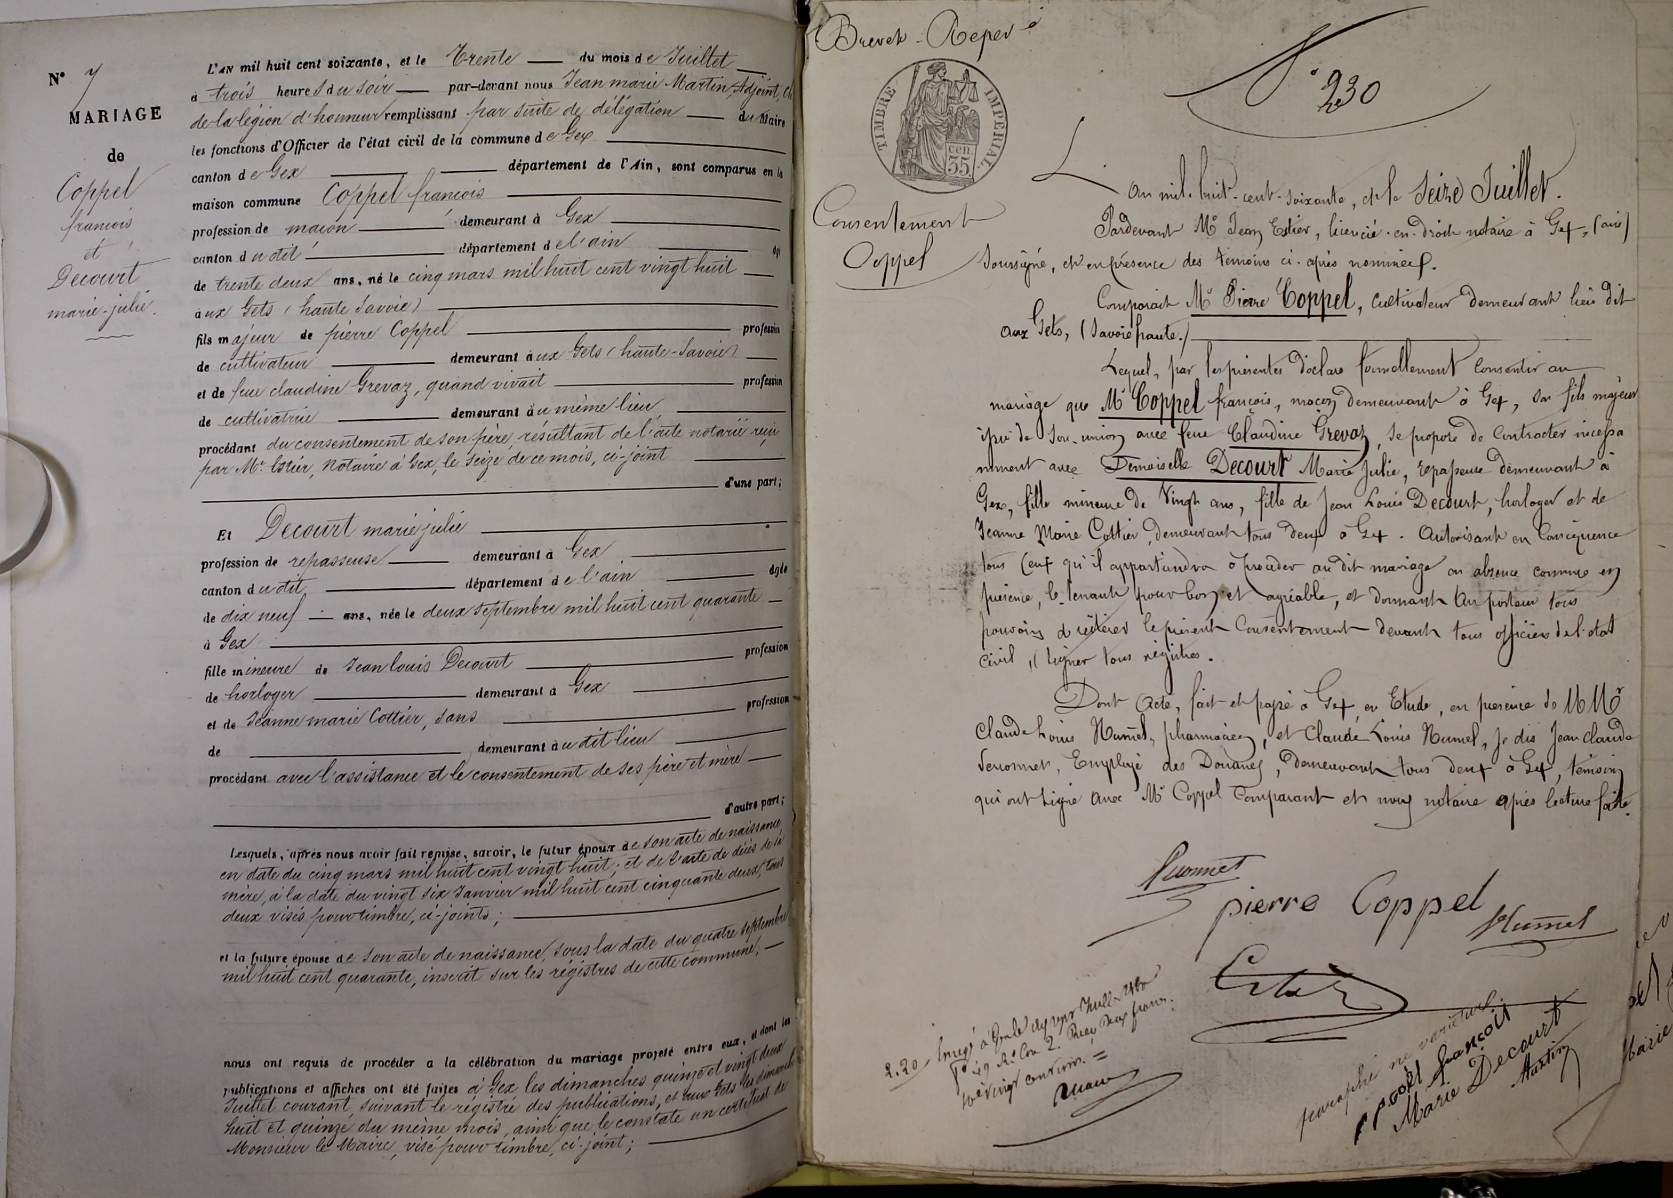 N° 7
MARIAGE
de
Coppel
françois
et
Decourt
marie-julie.
L'AN mil huit cent soixante, et le Trente du mois de Juillet
à trois heures du soir par-devant nous Jean marie Martin, Adjoint,
de la légion d'honneur remplissant par suite de délégation du Maire
les fonctions d'Officier de l'état civil de la commune de Gex
canton de Gex département de l'Ain, sont comparus en la
maison commune Coppel françois
profession de maçon demeurant à Gex
canton du dit département de l'ain
de trente deux ans, né le cinq mars mil huit cent vingt huit
aux Gets (haute Savoie)
fils majeur de pierre Coppel profession
de cultivateur demeurant aux Gets (haute-Savoie)
et de feue claudine Grevaz, quand vivait profession
de cultivatrice demeurant au même lieu,
procédant du consentement de son père, résultant de l'acte notarié reçu
par Mr Estier, Notaire à Gex, le seize de ce mois, ci-joint
d'une part;
Et Decourt marie julie
profession de repasseuse demeurant à Gex
canton du dit département de l'ain âgée
de dix neuf ans, née le deux septembre mil huit cent quarante
à Gex
fille mineure de Jean louis Decourt profession
de horloger demeurant à Gex
et de Jeanne marie Cottier, sans profession
de demeurant au dit lieu
procédant avec l'assistance et le consentement de ses père et mère
d'autre part;
Lesquels, après nous avoir fait remise, savoir, le futur époux de son acte de naissance,
en date du cinq mars mil huit cent vingt huit; et de l'acte de décès de sa
mère, à la date du vingt six Janvier mil huit cent cinquante deux, tous
deux visés pour timbre, ci-joints;
et la future épouse de son acte de naissance, sous la date du quatre septembre
mil huit cent quarante, inscrit sur les régistres de cette commune;
nous ont requis de procéder a la célébration du mariage projeté entre eux, et dont les
publications et affiches ont été faites à Gex les dimanches quinze et vingt deux
Juillet courant, suivant le régistre des publications, et aux Gets les dimanches
huit et quinze du même mois, ainsi que le constate un certificat de
Monsieur le Maire, visé pour timbre, ci-joint;
Brevet
N° 230
TIMBRE IMPERIAL
35 cen.
Consentement
Coppel
L'an mil huit-cent-soixante, et le Seize Juillet.
Pardevant Me Jean Estier, licencié-en-droit notaire à Gex, (ain)
Soussigné, et en présence des témoins ci-après nommés.
Comparait Mr Pierre Coppel, cultivateur demeurant lieu dit
aux Gets, (Savoie haute.)
Lequel, par les présentes déclare formellement consentir au
mariage que Mr Coppel françois, maçon demeurant à Gex, son fils majeur
issu de son union avec feue Claudine Grevaz, se propose de contracter incessa
mment avec Demoiselle Decourt Marie Julie, repasseuse demeurant à
Gex, fille mineure de vingt ans, fille de Jean Louis Decourt, horloger et de
Jeanne Marie Cottier, demeurant tous deux à Gex. Autorisant en conséquence
tous ceux qu'il appartiendra à procéder au dit mariage en absence comme en
présence, le tenant pour bon et agréable, et donnant au porteur tous
pouvoirs de réitérer le présent consentement devant tous officiers de l'état
civil, signer tous registres.
Dont Acte, fait et passé à Gex, en Etude, en présence de MMrs
Claude Louis Humel, pharmacien, et Claude Louis Humel, je dis Jean Claude
Employé des Douanes, demeurant tous deux à Gex, témoins
qui ont signé avec Mr Coppel comparant et nous notaire après lecture faite.
pierre Coppel
Humel
Estier
2.20
paraphé ne varietur
Coppel françois
Marie Decourt
Martin
Marie